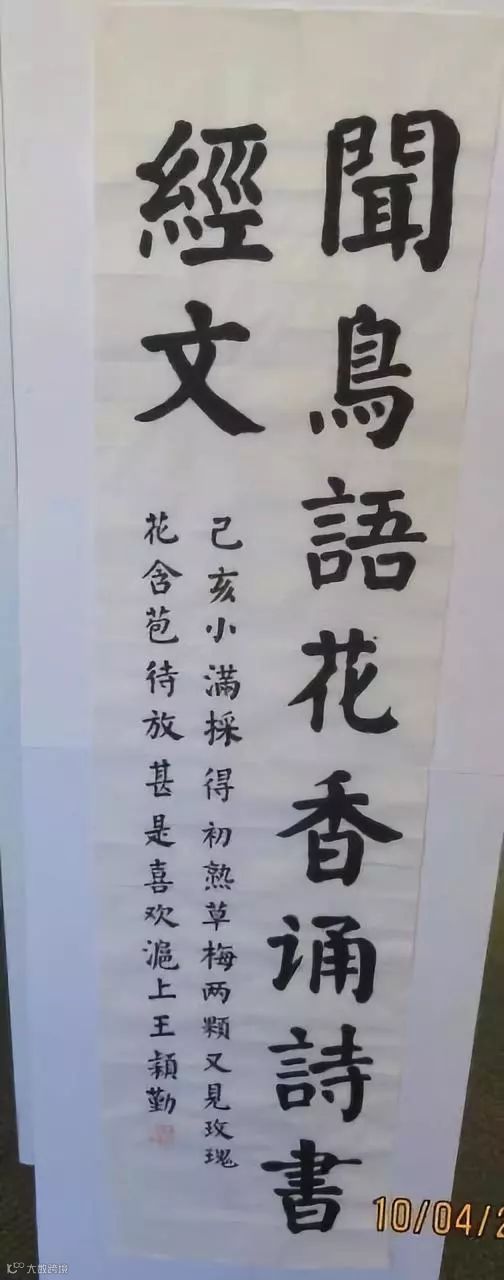 聞鳥語花香诵詩書
經文
己亥小滿採得初熟草梅两顆又見玫瑰
花含苞待放甚是喜欢滬上王穎勤
10/04/2
大数跨境